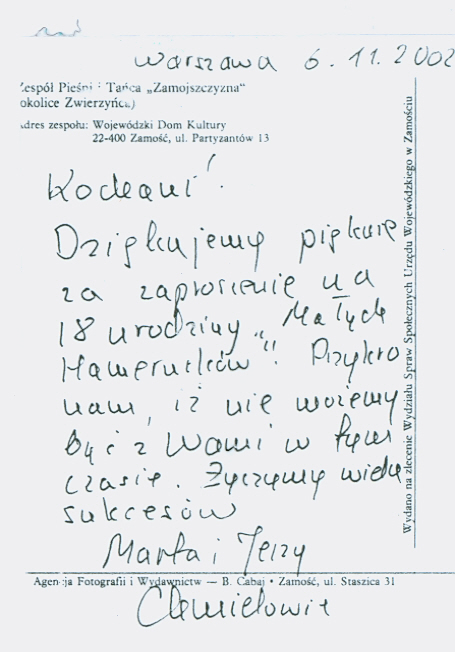 Warszawa 6.11.2002
Zespół Pieśni i Tańca „Zamojszczyzna"
(okolice Zwierzyńca)
Adres zespołu: Wojewódzki Dom Kultury
22-400 Zamość, ul. Partyzantów 13
Kochani!
Dziękujemy pięknie
za zaproszenie na
18 urodziny „Małych
Hamerników". Przykro
nam, iż nie możemy
być z Wami w tym
czasie. Życzymy wielu
sukcesów
Marta i Jerzy
Chmielowie
Agencja Fotografii i Wydawnictw — B. Cabaj • Zamość, ul. Staszica 31
Wydano na zlecenie Wydziału Spraw Społecznych Urzędu Wojewódzkiego w Zamościu